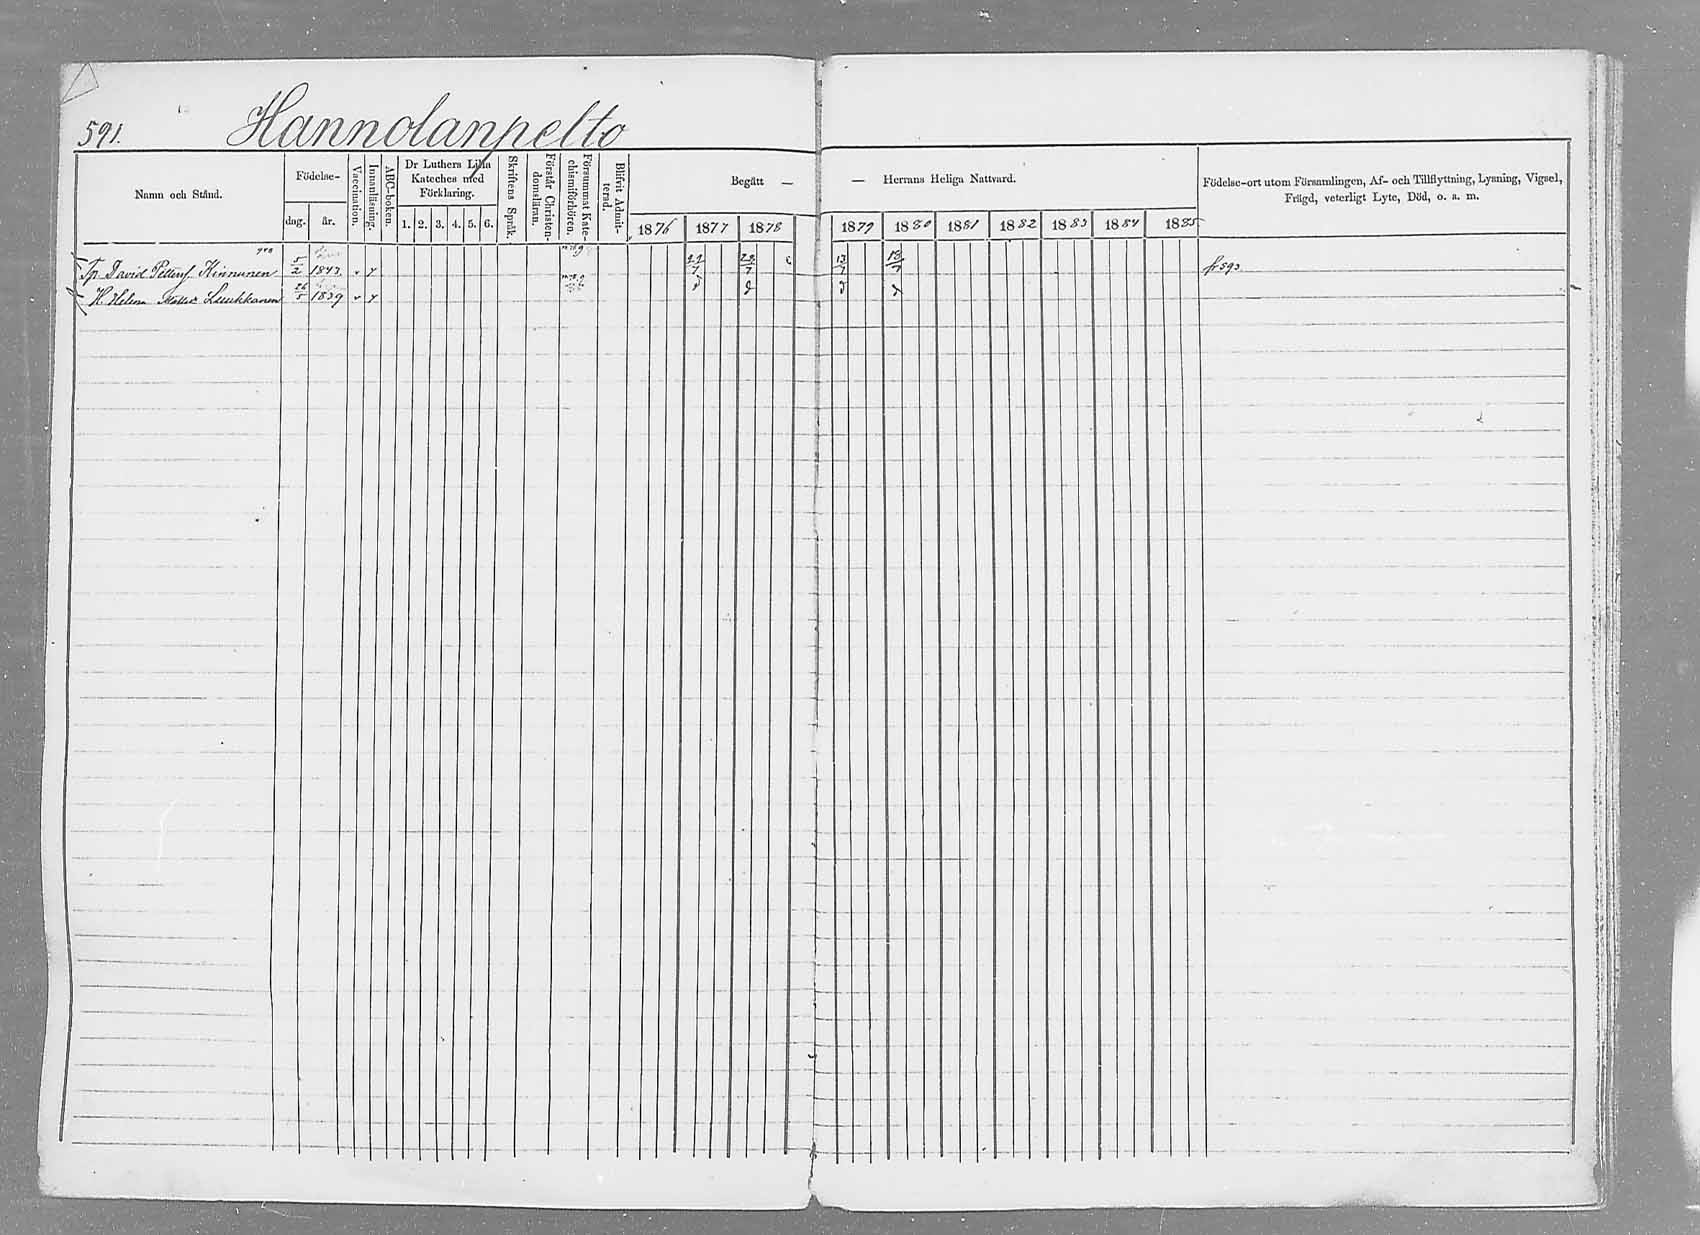 591.
Hannolanpelto
Namn och Stånd.
Födelse-
dag. år.
Vaccination.
Innanläsning.
ABC-boken.
Dr Luthers Lilla
Kateches med
Förklaring.
1. 2. 3. 4. 5. 6.
Skriftens Språk.
Förstår Christen-
domsläran.
Försummat Kate-
chismiförhören.
Blifvit Admit-
terad.
Begått —
— Herrans Heliga Nattvard.
1876 1877 1878 1879 1880 1881 1882 1883 1884 1885
Födelse-ort utom Församlingen, Af- och Tillflyttning, Lysning, Vigsel,
Frägd, veterligt Lyte, Död, o. s. m.
David Petterss Kinnunen 5/2 1843 v y 13/7 13/7 fr 593
H. Helena Leukkanen 26/5 1839 v y d d d d